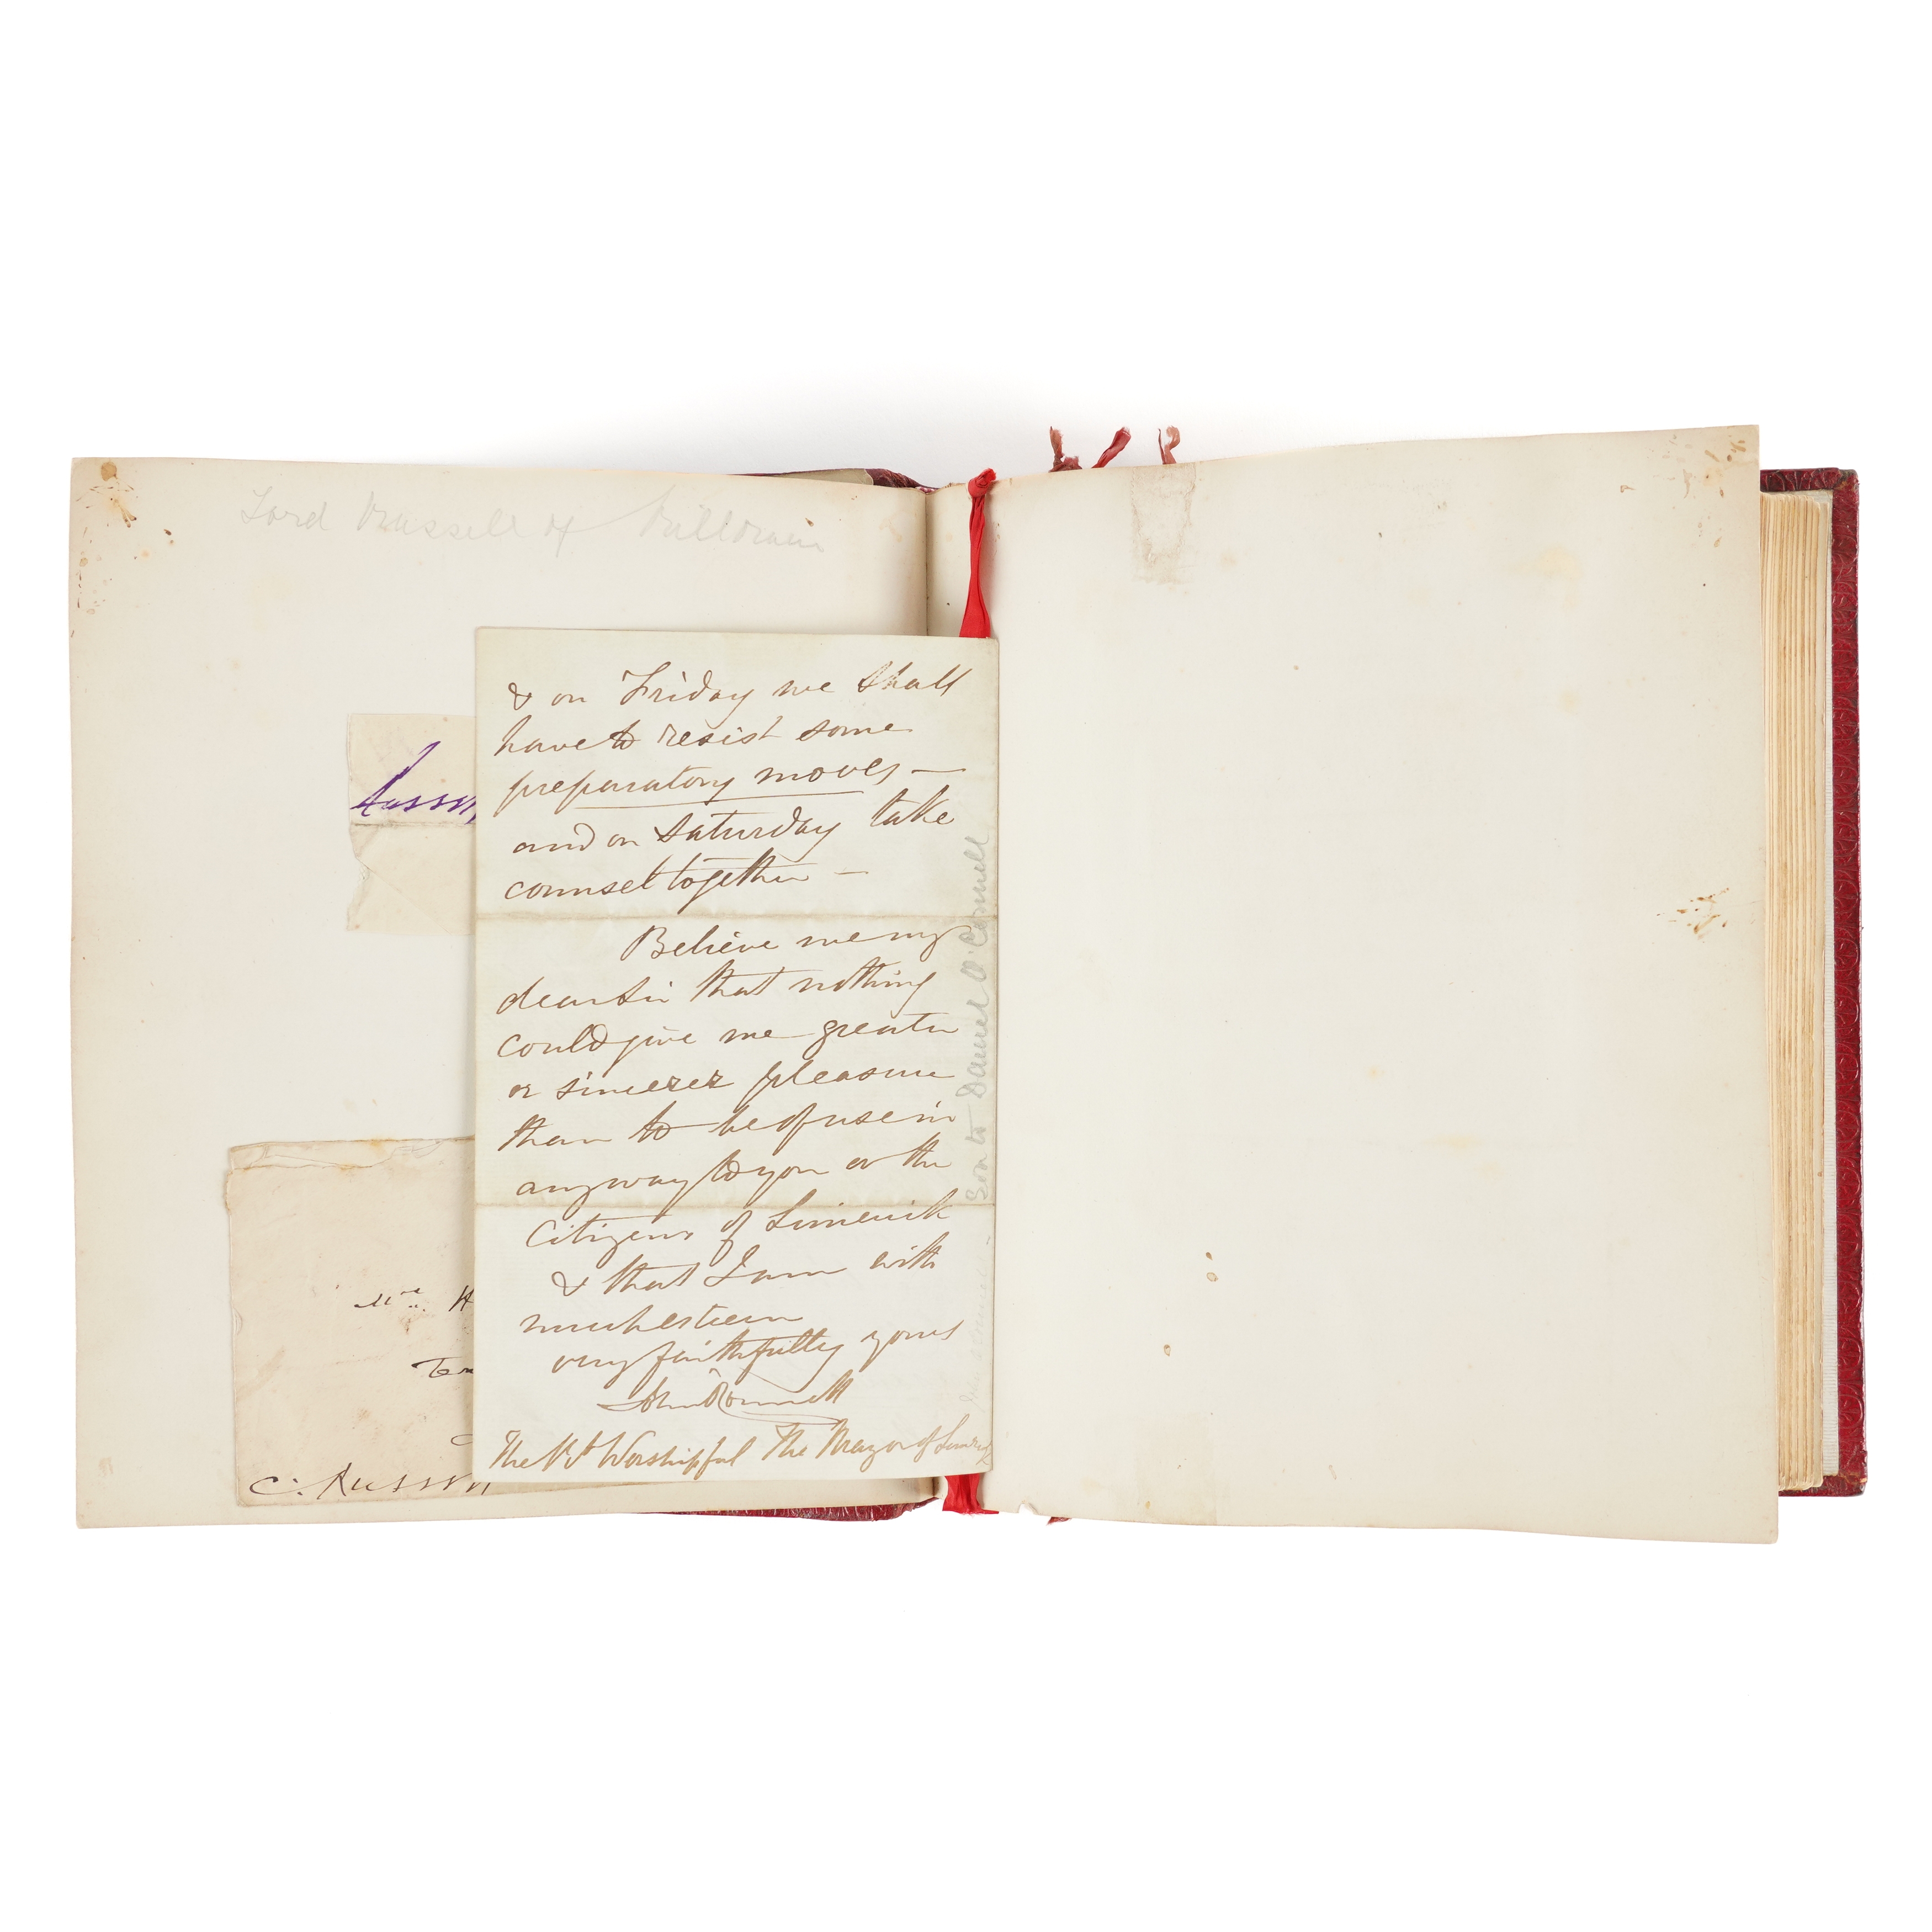 Lord Russell of Killowen
Russell
& on Friday we shall
have to resist some
preparatory moves —
and on Saturday take
counsel together —
Believe me my
dear Sir that nothing
could give me greater
or sincerer pleasure
than to be of use in
any way to you or the
Citizens of Limerick
& that I am with
much esteem
very faithfully yours
John O'Connell
The Rt Worshipful The Mayor of Limerick
Son to Daniel O'Connell
Mrs. H
C. Russell